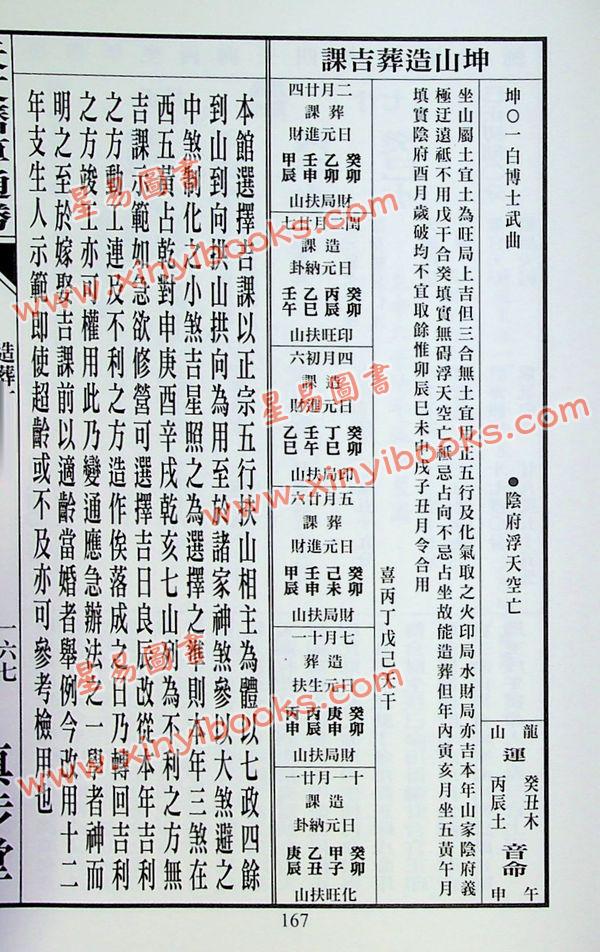 坤山造葬吉課
坤〇一白博士武曲
●陰府浮天空亡
龍 癸丑木 音 午
山 運 丙辰土 命 申
坐山屬土宜土為旺局上吉但三合無土宜用正五行及化氣取之火印局水財局亦吉本年山家陰府義
極迂遠祗不用戊干合癸填實無碍浮天空亡祗忌占向不忌占坐故能造葬但年內寅亥月坐五黃午月
填實陰府酉月歲破均不宜取餘惟卯辰巳未申戌子丑月令合用
喜丙丁戊己天干
二月廿四
葬課
日元進財
癸卯
乙卯
壬申
甲辰
財局扶山
閏二月廿七
造課
日元納卦
癸卯
丙辰
乙巳
壬午
印旺扶山
四月初六
造課
日元進財
癸卯
丁巳
壬午
乙巳
印局扶山
五月廿六
葬課
日元進財
癸卯
己未
壬申
甲辰
財局扶山
七月十一
造葬
日元生扶
癸卯
庚申
丙辰
丙申
財局扶山
十一月廿一
造課
日元納卦
癸卯
甲子
乙丑
庚辰
化旺扶山
本館選擇吉課以正宗五行扶山相主為體以七政四餘
到山到向拱山拱向為用至於諸家神煞參以大煞避之
中煞制化之小煞吉星照之為選擇之準則本年三煞在
西五黃占乾對申庚酉辛戌乾亥七山列為不利之方無
吉課示範如急欲修營可選擇吉日良辰改從本年吉利
之方動工連及不利之方造作俟落成之日乃轉回吉利
之方竣工亦可權用此乃變通應急辦法之一學者神而
明之至於嫁娶吉課前以適齡當婚者舉例今改用十二
年支生人示範即使超齡或不及亦可參考檢用也
造葬
一六七
真步堂
167
星易圖書
www.xinyibooks.com
星易圖書
www.xinyibooks.com
星易圖書
www.xinyibooks.com
星易圖書
www.xinyibooks.com
星易圖書
www.xinyibooks.com
星易圖書
www.xinyibooks.com